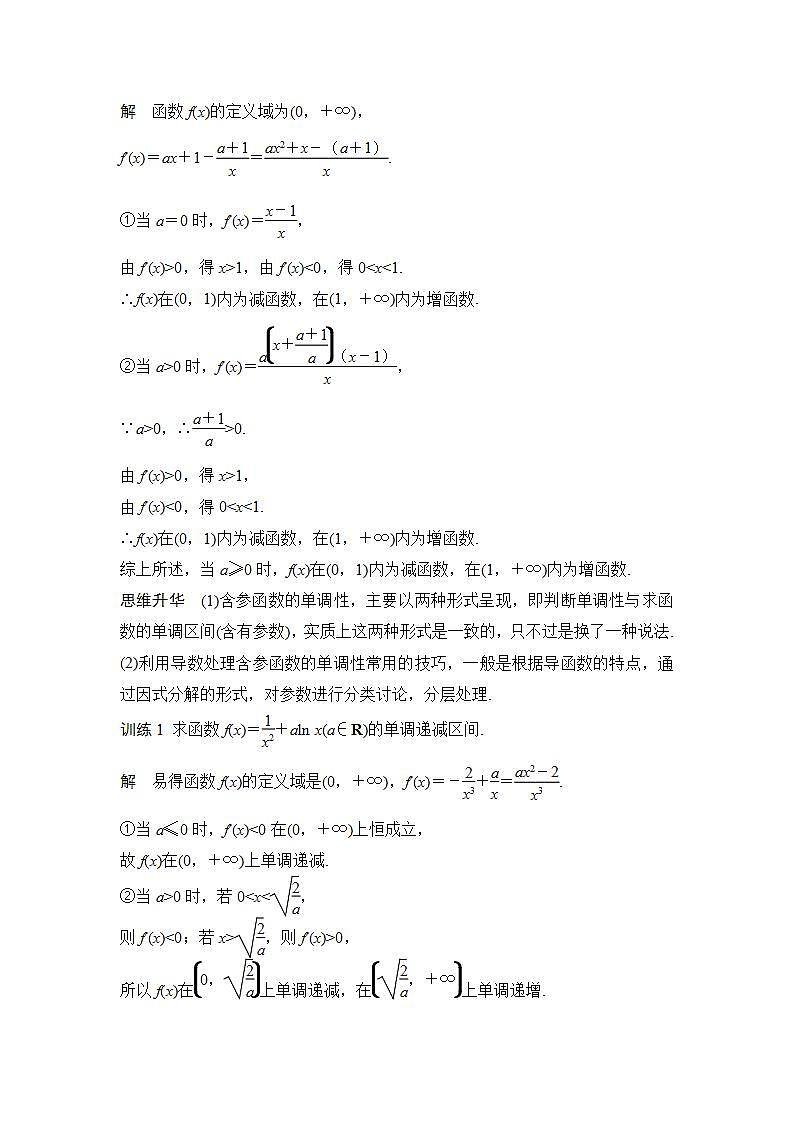 解　函数 f(x)的定义域为(0，＋∞)，
f′(x)＝ax＋1－\frac{a＋1}{x}＝\frac{ax²＋x－（a＋1）}{x}.
①当 a＝0 时，f′(x)＝\frac{x－1}{x}，
由 f′(x)>0，得 x>1，由 f′(x)<0，得 0<x<1.
∴f(x)在(0，1)内为减函数，在(1，＋∞)内为增函数.
②当 a>0 时，f′(x)＝\frac{a(x＋\frac{a＋1}{a})（x－1）}{x}，
∵a>0，∴\frac{a＋1}{a}>0.
由 f′(x)>0，得 x>1，
由 f′(x)<0，得 0<x<1.
∴f(x)在(0，1)内为减函数，在(1，＋∞)内为增函数.
综上所述，当 a≥0 时，f(x)在(0，1)内为减函数，在(1，＋∞)内为增函数.
思维升华　(1)含参函数的单调性，主要以两种形式呈现，即判断单调性与求函
数的单调区间(含有参数)，实质上这两种形式是一致的，只不过是换了一种说法.
(2)利用导数处理含参函数的单调性常用的技巧，一般是根据导函数的特点，通
过因式分解的形式，对参数进行分类讨论，分层处理.
训练 1 求函数 f(x)＝\frac{1}{x²}＋aln x(a∈R)的单调递减区间.
解　易得函数 f(x)的定义域是(0，＋∞)，f′(x)＝－\frac{2}{x³}＋\frac{a}{x}＝\frac{ax²－2}{x³}.
①当 a≤0 时，f′(x)<0 在(0，＋∞)上恒成立，
故 f(x)在(0，＋∞)上单调递减.
②当 a>0 时，若 0<x<\sqrt{\frac{2}{a}}，
则 f′(x)<0；若 x>\sqrt{\frac{2}{a}}，则 f′(x)>0，
所以 f(x)在(0，\sqrt{\frac{2}{a}})上单调递减，在(\sqrt{\frac{2}{a}}，＋∞)上单调递增.